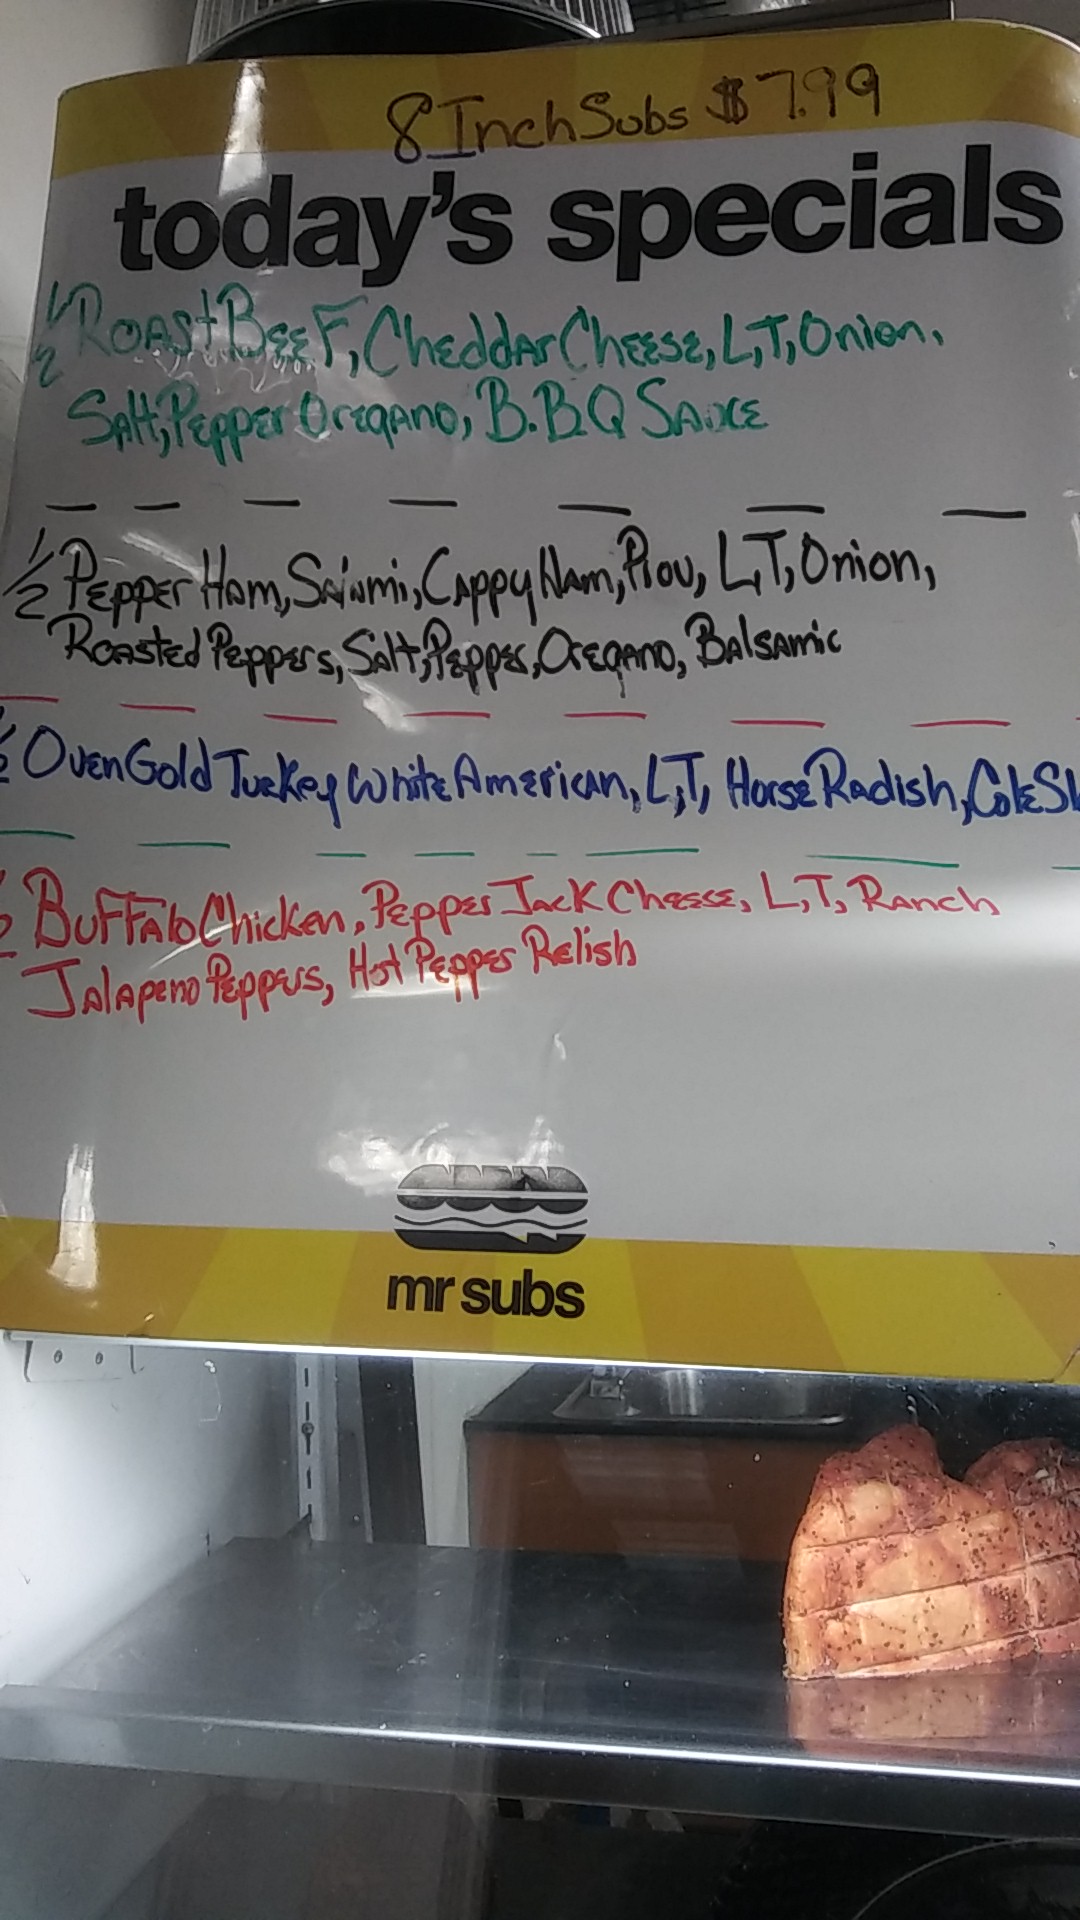 8 Inch Subs $7.99
today's specials
1/2 Roast Beef, Cheddar Cheese, L,T, Onion,
Salt, Pepper Oregano, B.B.Q Sauce
1/2 Pepper Ham, Salami, Cappy Ham, Prov, L,T, Onion,
Roasted Peppers, Salt, Pepper, Oregano, Balsamic
Oven Gold Turkey White American, L,T, Horse Radish, Cole Sl
Buffalo Chicken, Pepper Jack Cheese, L,T, Ranch
Jalapeno Peppers, Hot Pepper Relish
mr subs